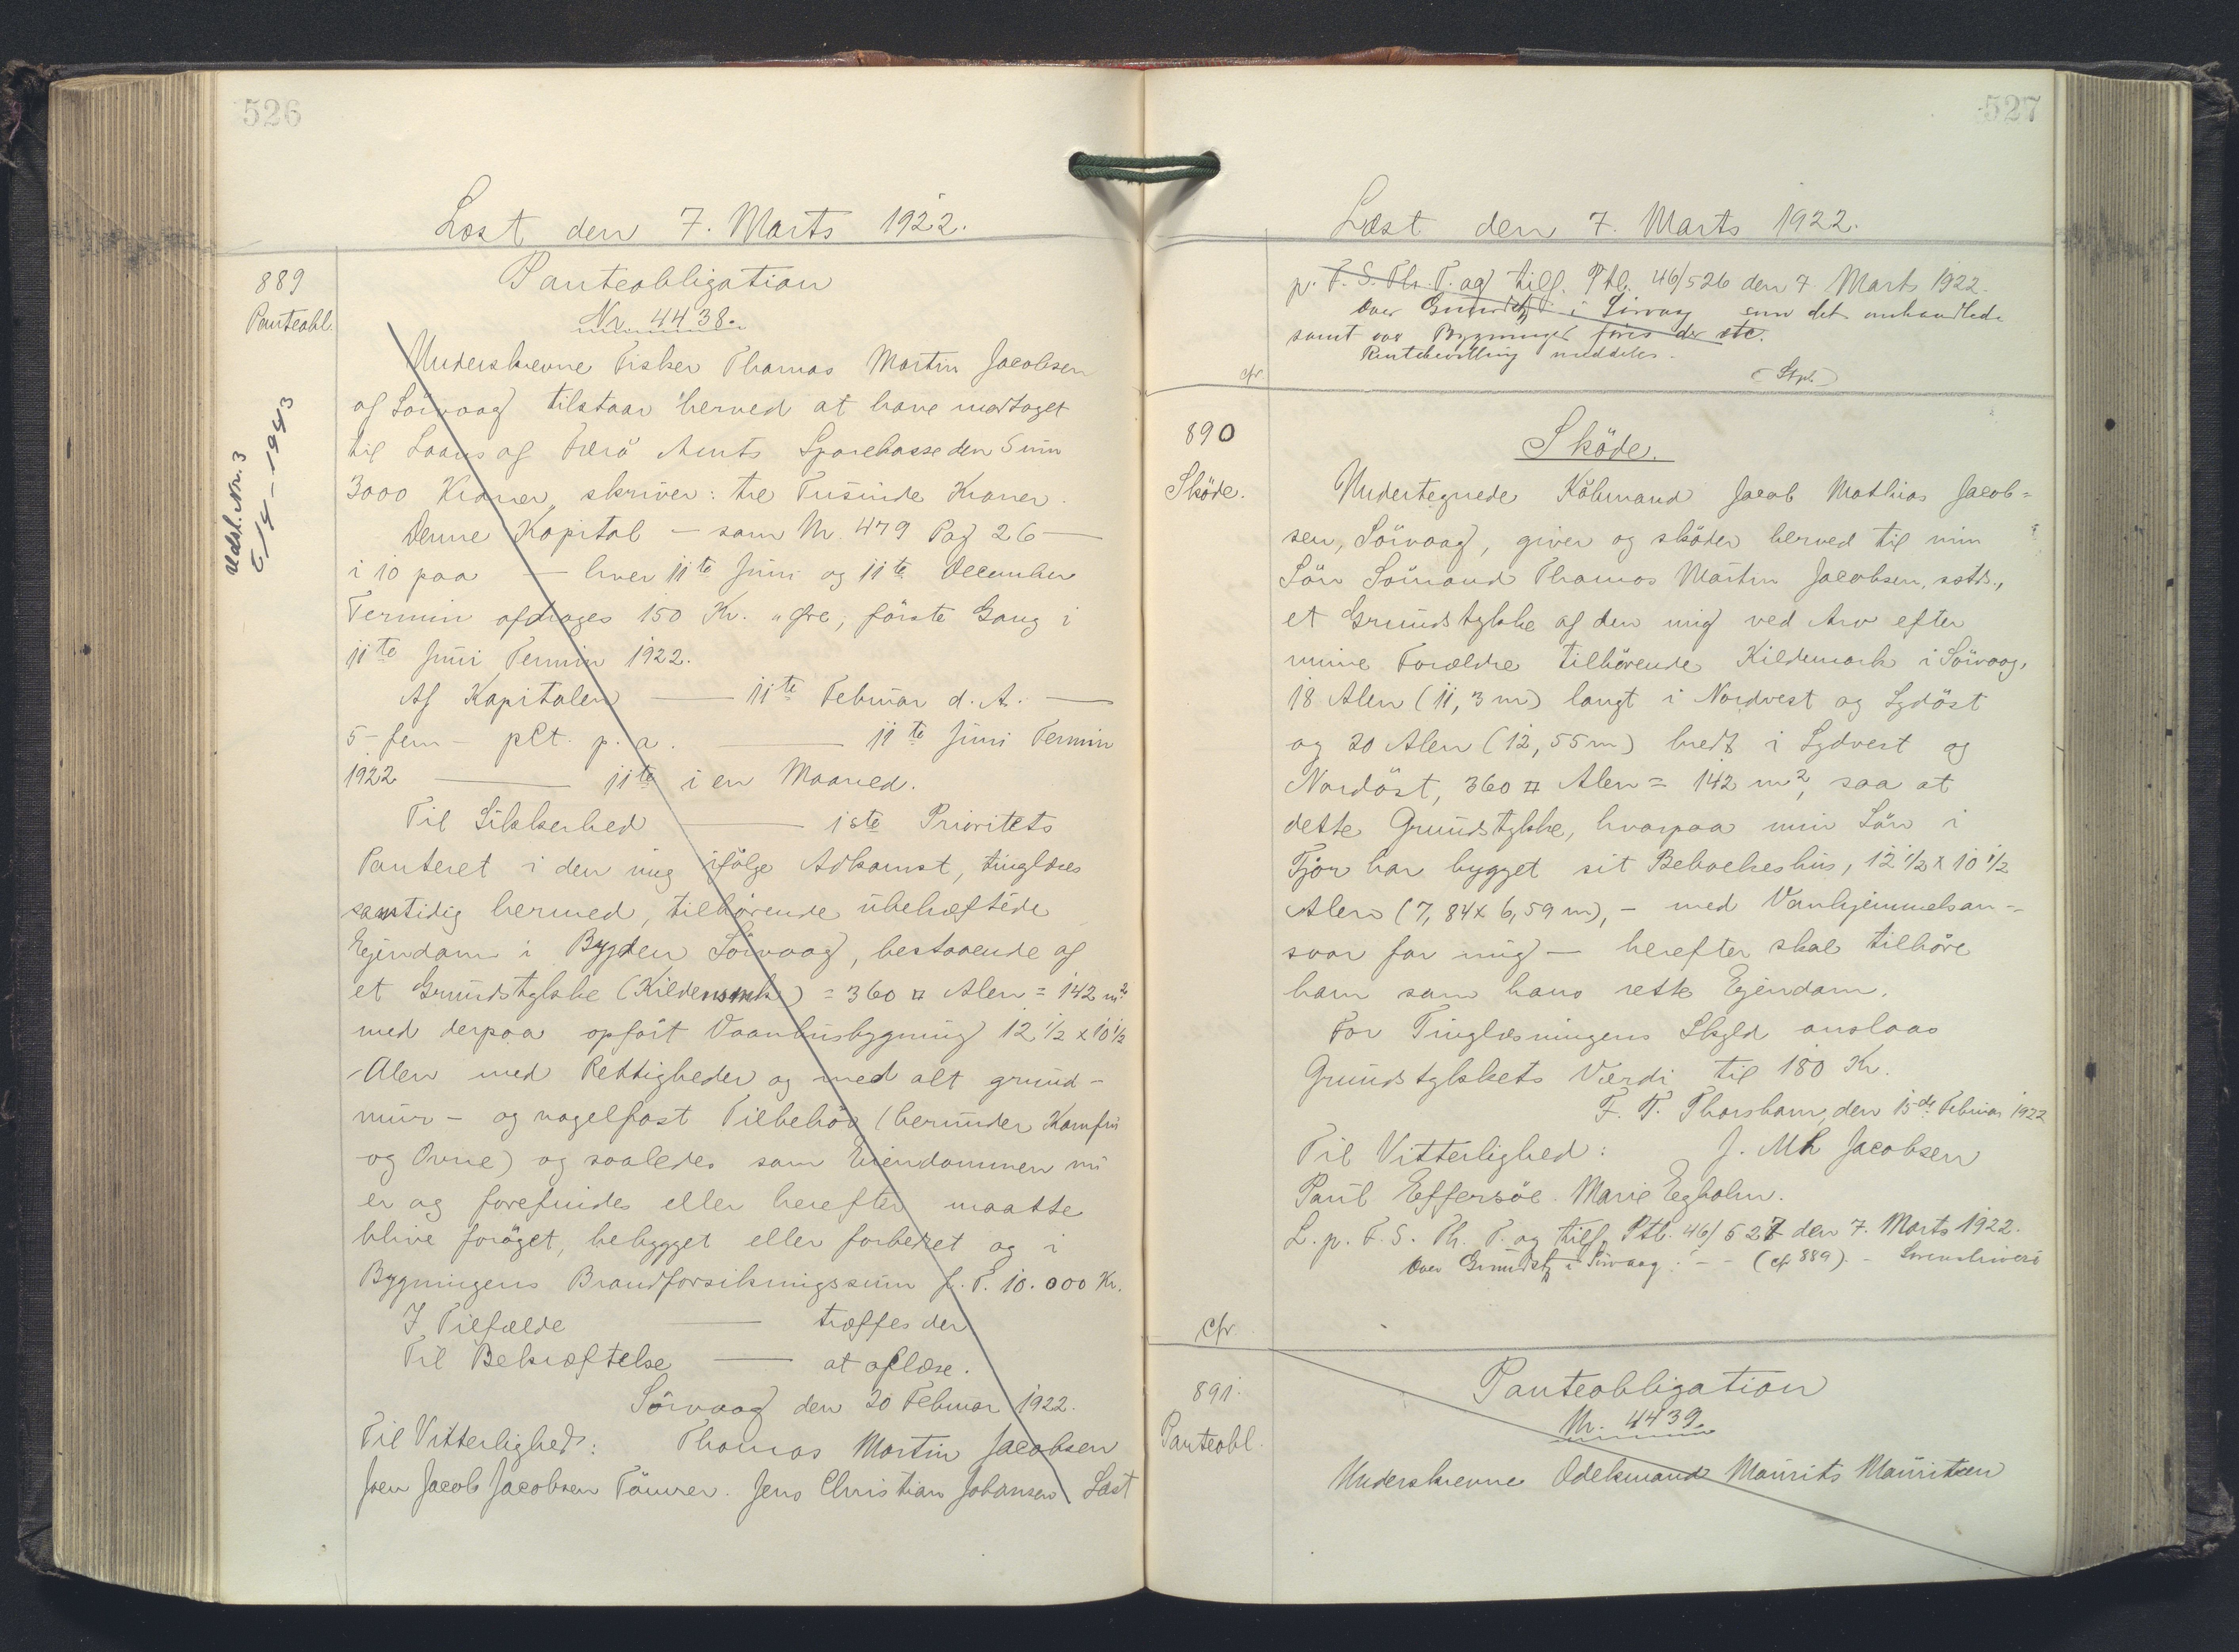 526
Læst den 7. Marts 1922.
889
Panteobl.
Panteobligation
Nr. 4438.
Underskrevne Fisker Thomas Martin Jacobsen
af Sörvaag tilstaar herved at have modtaget
til Laans af Færö Amts Sparekasse den Sum
3000 Kroner, skriver: tre Tusinde Kroner.
Denne Kapital — som Nr. 479 Pag 26 —
i 10 paa — hver 11te Juni og 11te December
Termin afdrages 150 Kr. " Øre, förste Gang i
11te Juni Termin 1922.
Af Kapitalen — 11te Februar d. A. —
5 - fem - pCt. p. a. — 11te Juni Termin
1922 — 11te i en Maaned.
Til Sikkerhed — 1ste Prioritets
Panteret i den mig ifölge Adkomst, tinglæses
samtidig hermed, tilhørende ubehæftede
Ejendom i Bygden Sörvaag, bestaaende af
et Grundstykke (Kildemark) = 360 □ Alen = 142 m²
med derpaa opfört Vaanhusbygning 12 1/2 x 10 1/2
Alen med Rettigheder og med alt grund-
mur- og nagelfast Tilbehör (herunder Komfur
og Ovne) og saaledes som Ejendommen nu
er og forefindes eller herefter maatte
blive foröget, bebygget eller forbedret og i
Bygningens Brandforsikringssum f. T. 10.000 Kr.
I Tilfælde — træffes der
Til Bekræftelse — at aflæse.
Sörvaag den 20 Februar 1922.
Til Vitterlighed: Thomas Martin Jacobsen
Joen Jacob Jacobsen Tömrer. Jens Christian Johansen Læst
udsl. Nr. 3
5/4 - 1943
527
Læst den 7. Marts 1922.
p. F. S. Th. T. og tilf. Ptb. 46/526 den 7 Marts 1922.
over Grundst i Sörvaag som det omhandlede
samt over Bygninger föres der etc.
Rentebevilling meddeles.
cfr.
890
Sköde.
Sköde.
Undertegnede Köbmand Jacob Mathias Jacob=
sen, Sörvaag, giver og sköder herved til min
Sön Sömand Thomas Martin Jacobsen, sstds.,
et Grundstykke af den mig ved Arv efter
mine Forældre tilhörende Kildemark i Sörvaag,
18 Alen (11,3 m) langt i Nordvest og Sydöst
og 20 Alen (12,55 m) bredt i Sydvest og
Nordöst, 360 □ Alen = 142 m², saa at
dette Grundstykke, hvorpaa min Sön i
Fjor har bygget sit Beboelseshus, 12 1/2 x 10 1/2
Alen (7,84 x 6,59 m), - med Vanhjemmelsan=
svar for mig - herefter skal tilhöre
ham som hans rette Ejendom.
For Tinglæsningens Skyld anslaas
Grundstykkets Værdi til 180 Kr.
F. T. Thorshavn, den 15de Februar 1922
Til Vitterlighed: J. Mh Jacobsen
Paul Effersöe. Marie Egholm.
L. p. F. S. Th. T. og tilf. Ptb. 46/527 den 7. Marts 1922.
over Grundst i Sörvaag. - - (cf 889) - Sorenskriveri
cfr.
891.
Panteobl.
Panteobligation
Nr. 4439.
Underskrevne Odelsmand Maurits Mauritsen